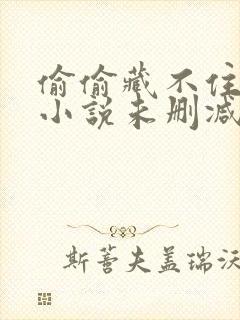 偷偷藏不住
小说未删减
斯蒈夫盖瑞沃